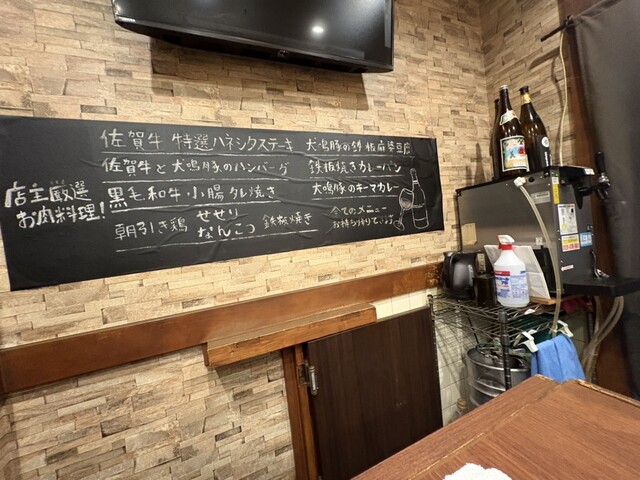 店主厳選
お肉料理!
佐賀牛 特選ハネシタステーキ
佐賀牛と犬鳴豚のハンバーグ
黒毛和牛小腸タレ焼き
朝引き鶏 せせり なんこつ 鉄板焼き
犬鳴豚の鉄板麻婆豆腐
鉄板焼きカレーパン
犬鳴豚のキーマカレー
全てのメニュー
お持ち帰りできます